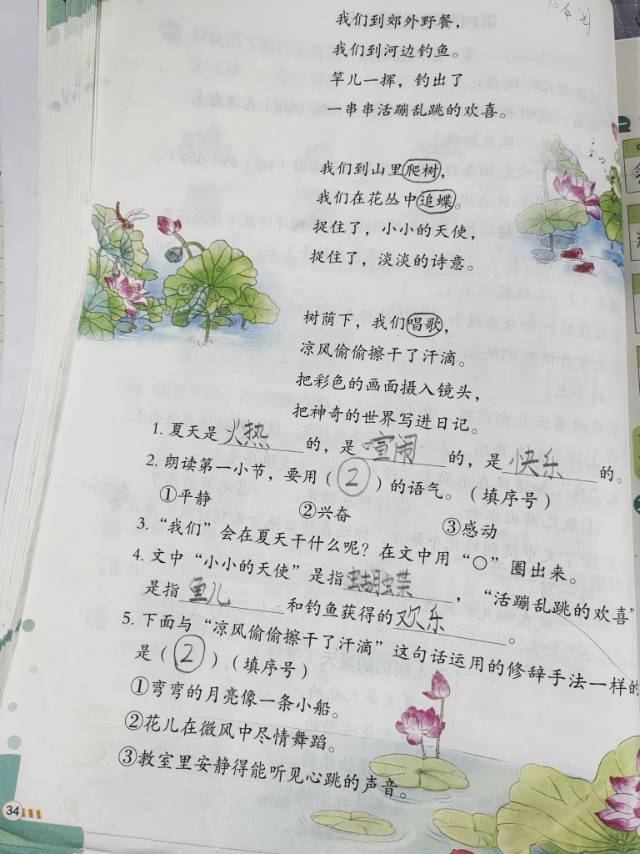 我们到郊外野餐，
我们到河边钓鱼。
竿儿一挥，钓出了
一串串活蹦乱跳的欢喜。
我们到山里爬树，
我们在花丛中追蝶。
捉住了，小小的天使，
捉住了，淡淡的诗意。
树荫下，我们唱歌，
凉风偷偷擦干了汗滴。
把彩色的画面摄入镜头，
把神奇的世界写进日记。
1. 夏天是火热的，是喧闹的，是快乐的。
2. 朗读第一小节，要用（2）的语气。（填序号）
①平静 ②兴奋 ③感动
3. “我们”会在夏天干什么呢？在文中用“○”圈出来。
4. 文中“小小的天使”是指蝴蝶，“活蹦乱跳的欢喜”
是指鱼儿和钓鱼获得的欢乐。
5. 下面与“凉风偷偷擦干了汗滴”这句话运用的修辞手法一样的
是（2）（填序号）
①弯弯的月亮像一条小船。
②花儿在微风中尽情舞蹈。
③教室里安静得能听见心跳的声音。
34